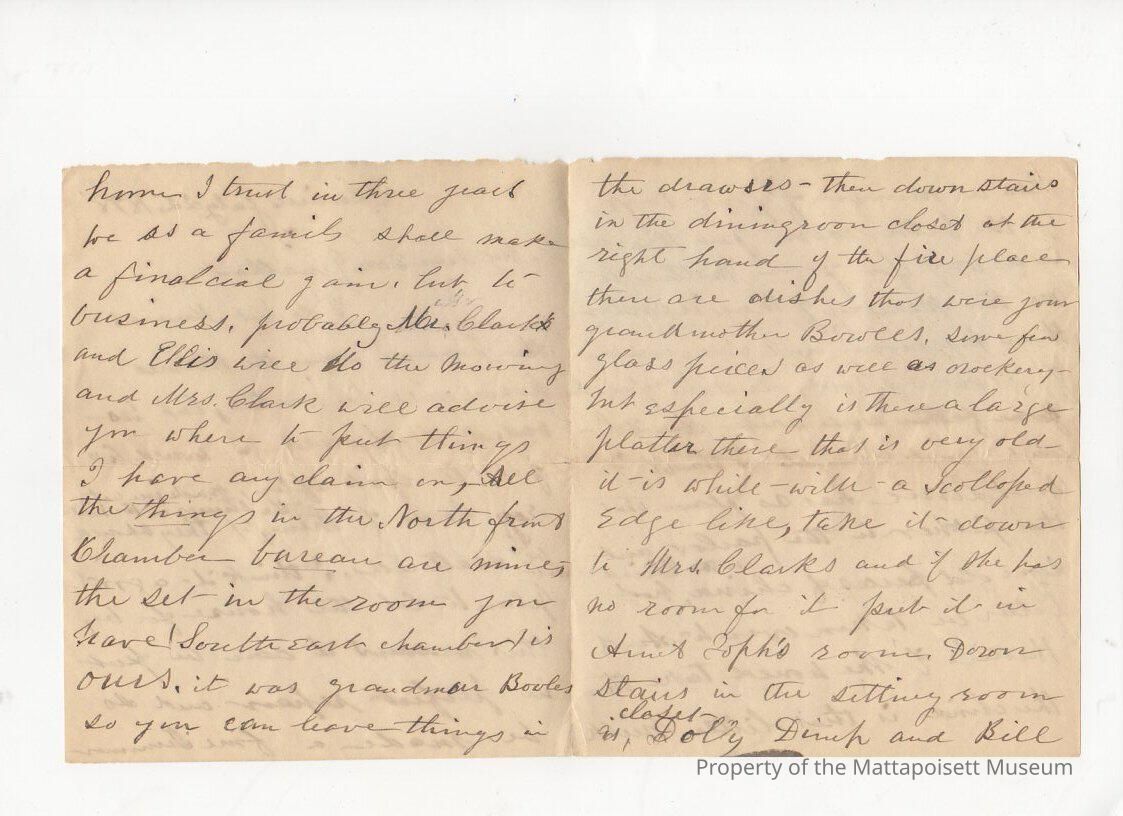 home I trust in three years
we as a family shall make
a finalcial gain. but to
business. probably Mr. Clark
and Ellis will do the mowing
and Mrs. Clark will advise
you where to put things
I have any claim on, All
the things in the North front
Chamber bureau are mine,
the set in the room you
have (South east chamber) is
ours. it was grandmar Bowles
so you can leave things in
the drawers - then down stairs
in the diningroon closet at the
right hand of the fire place
then are dishes that were your
grandmother Bowles. some few
glass pieces as well as crockery -
but especially is there a large
platter there that is very old
it is while - with - a scolloped
Edge like, take it down
to Mrs. Clarks and if she has
no room for it put it in
Aunt Toph's room. Down
stairs in the sitting room
closet
is, Dolly Dimp and Bill
Property of the Mattapoisett Museum